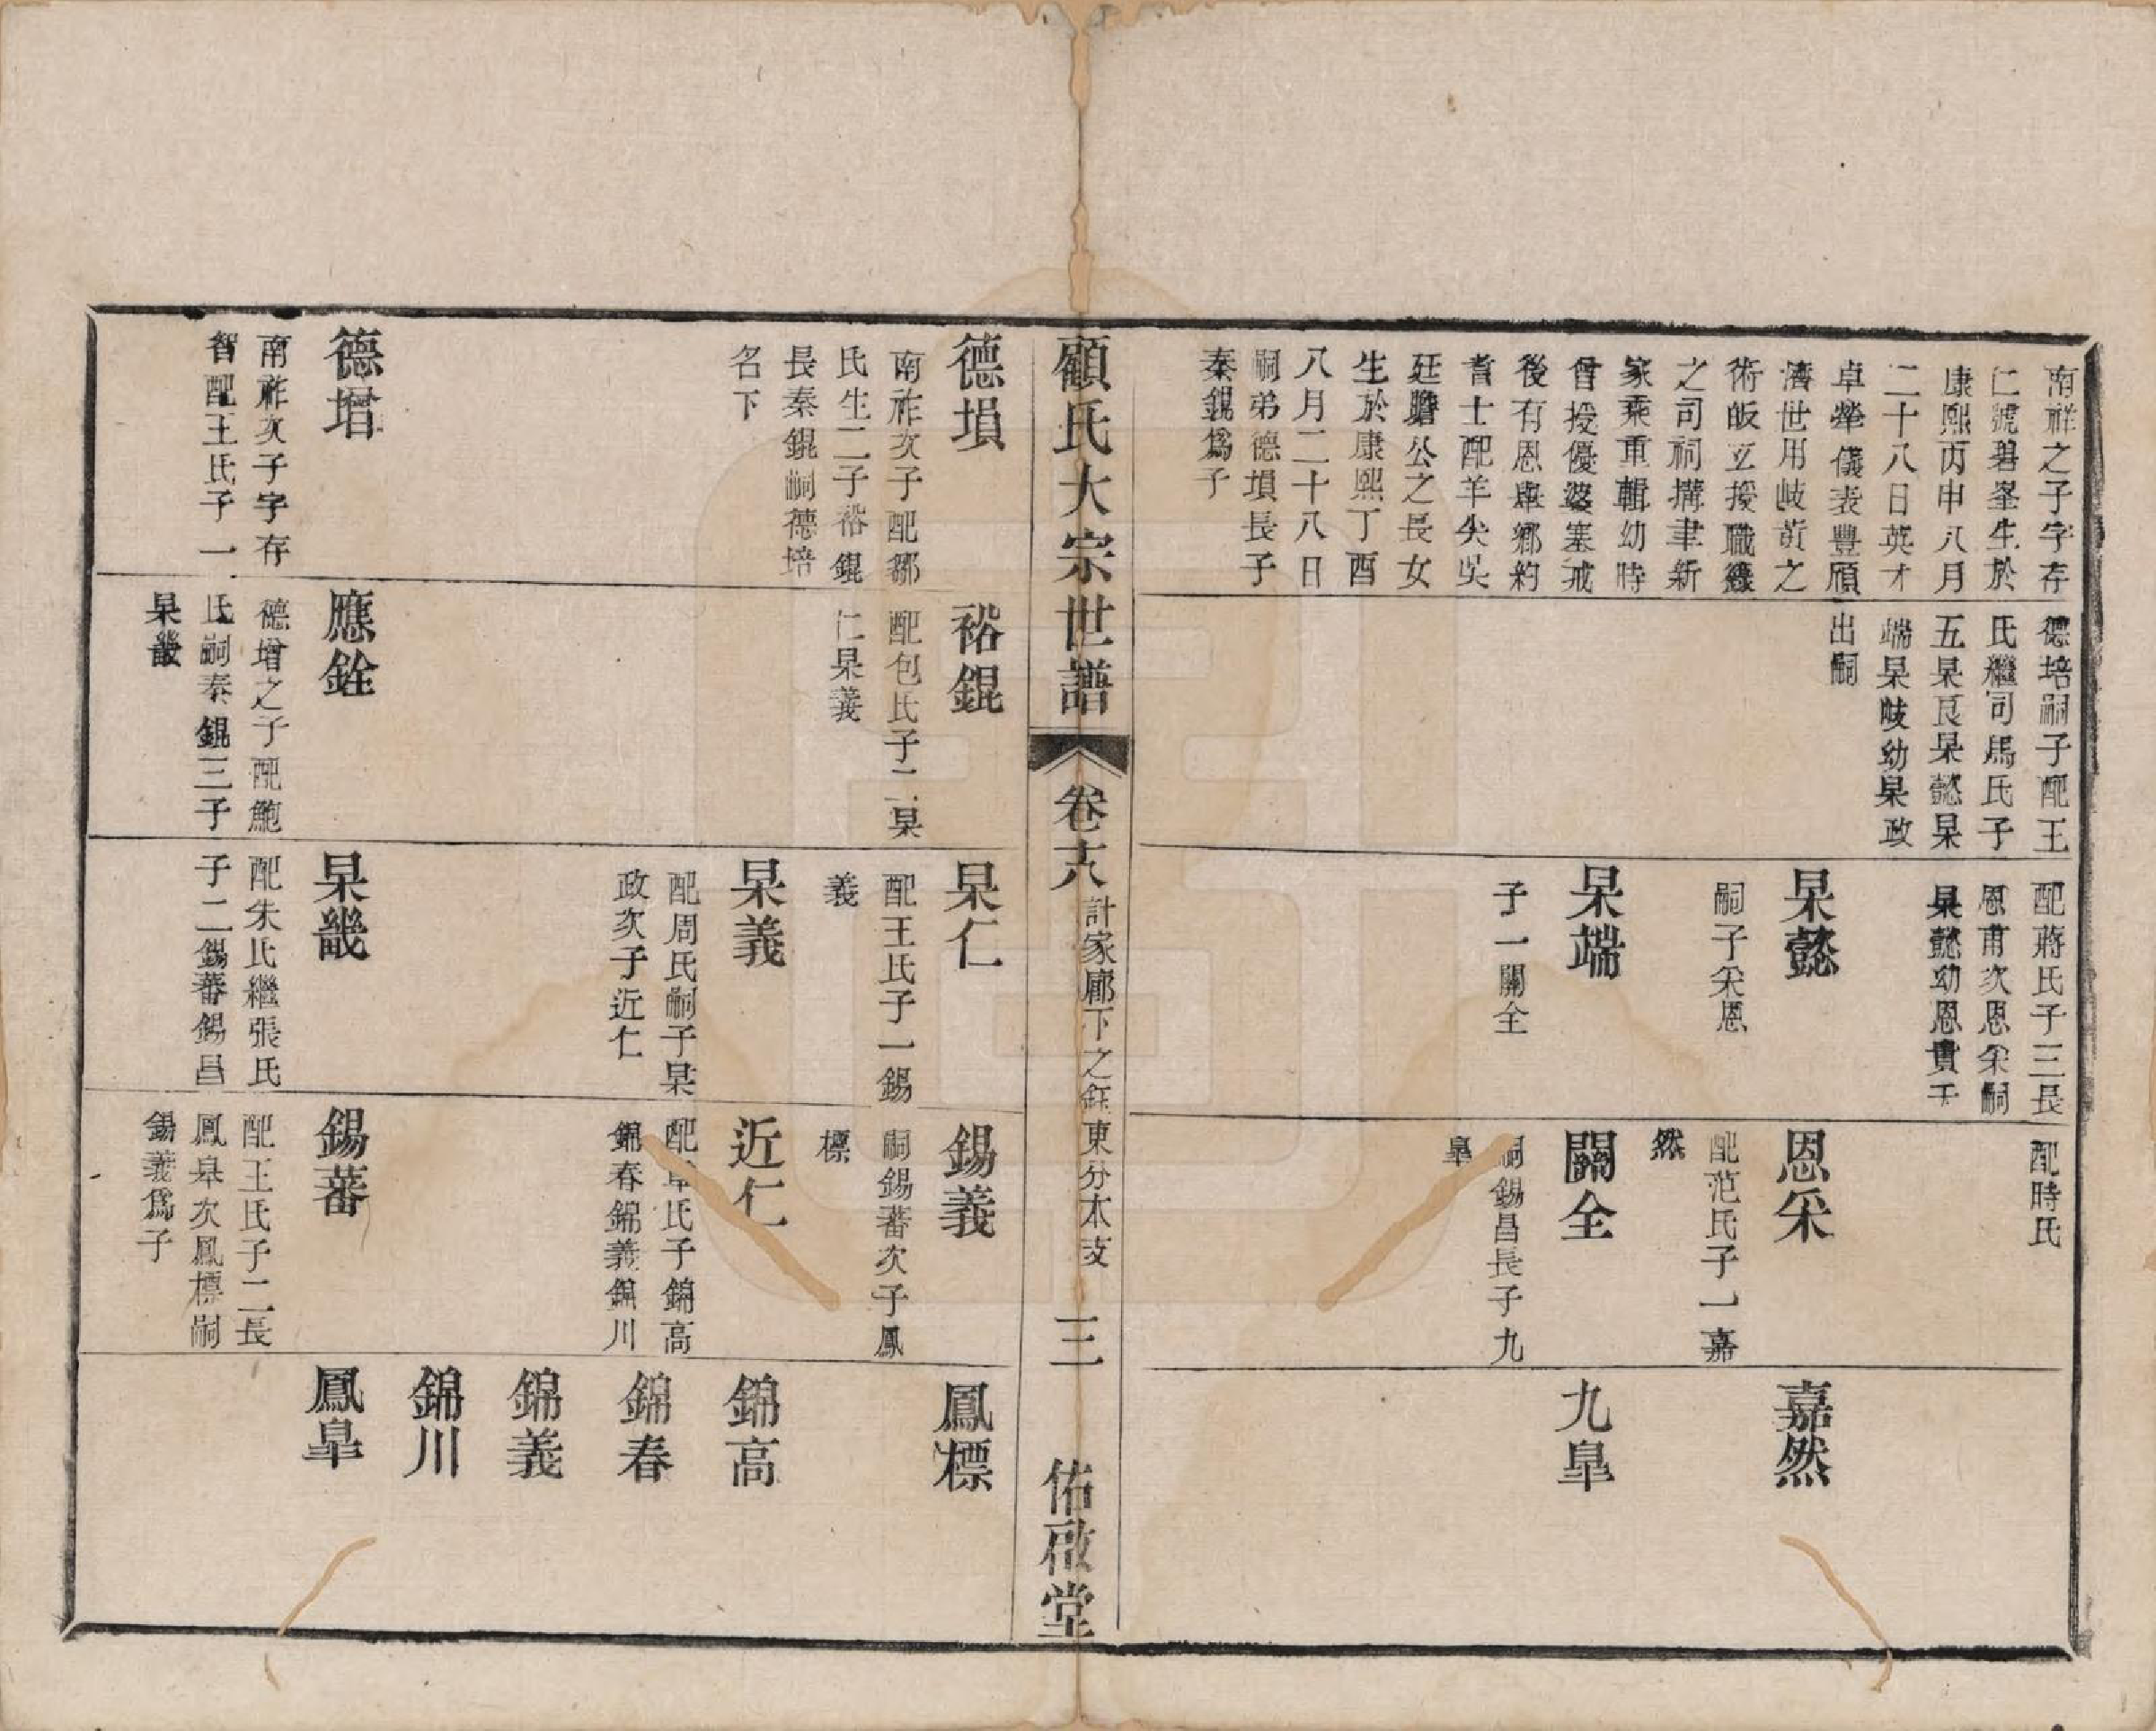 南祥之子字存
仁號碧峯生於
康熙丙申八月
二十八日英才
卓犖儀表豐頎
濟世用岐黃之
術皈立授職
之司祠搆聿新
家乘重輯幼時
曾授優婆塞戒
後有恩舉鄉約
耆士配羊尖吳
廷贍公之長女
生於康熙丁酉
八月二十八日
嗣弟德塤長子
秦錕爲子
德培嗣子配王
氏繼司馬氏子
五杲良杲懿杲
端杲岐幼杲政
出嗣
配蔣氏子三長
恩甫次恩采嗣
杲懿幼恩貴
杲懿
嗣子采恩
杲端
子一關全
配時氏
恩采
配范氏子一嘉
然
關全
嗣錫昌長子九
臯
嘉然
九臯
顧氏大宗世譜
卷十八
計家廊下之鈺東分本支
三
佑啟堂
德塤
南祚次子配鄒
氏生二子裕錕
長秦錕嗣德培
名下
德增
南祚次子字存
智配王氏子一
裕錕
配包氏子二杲
仁杲義
應銓
德增之子配鮑
氏嗣秦錕三子
杲畿
杲仁
配王氏子一錫
義
杲義
配周氏嗣子杲
政次子近仁
杲畿
配朱氏繼張氏
子二錫蕃錫昌
錫義
嗣錫蕃次子鳳
標
近仁
配章氏子錦高
錦春錦義錦川
錫蕃
配王氏子二長
鳳臯次鳳標嗣
錫義爲子
鳳標
錦高
錦春
錦義
錦川
鳳臯